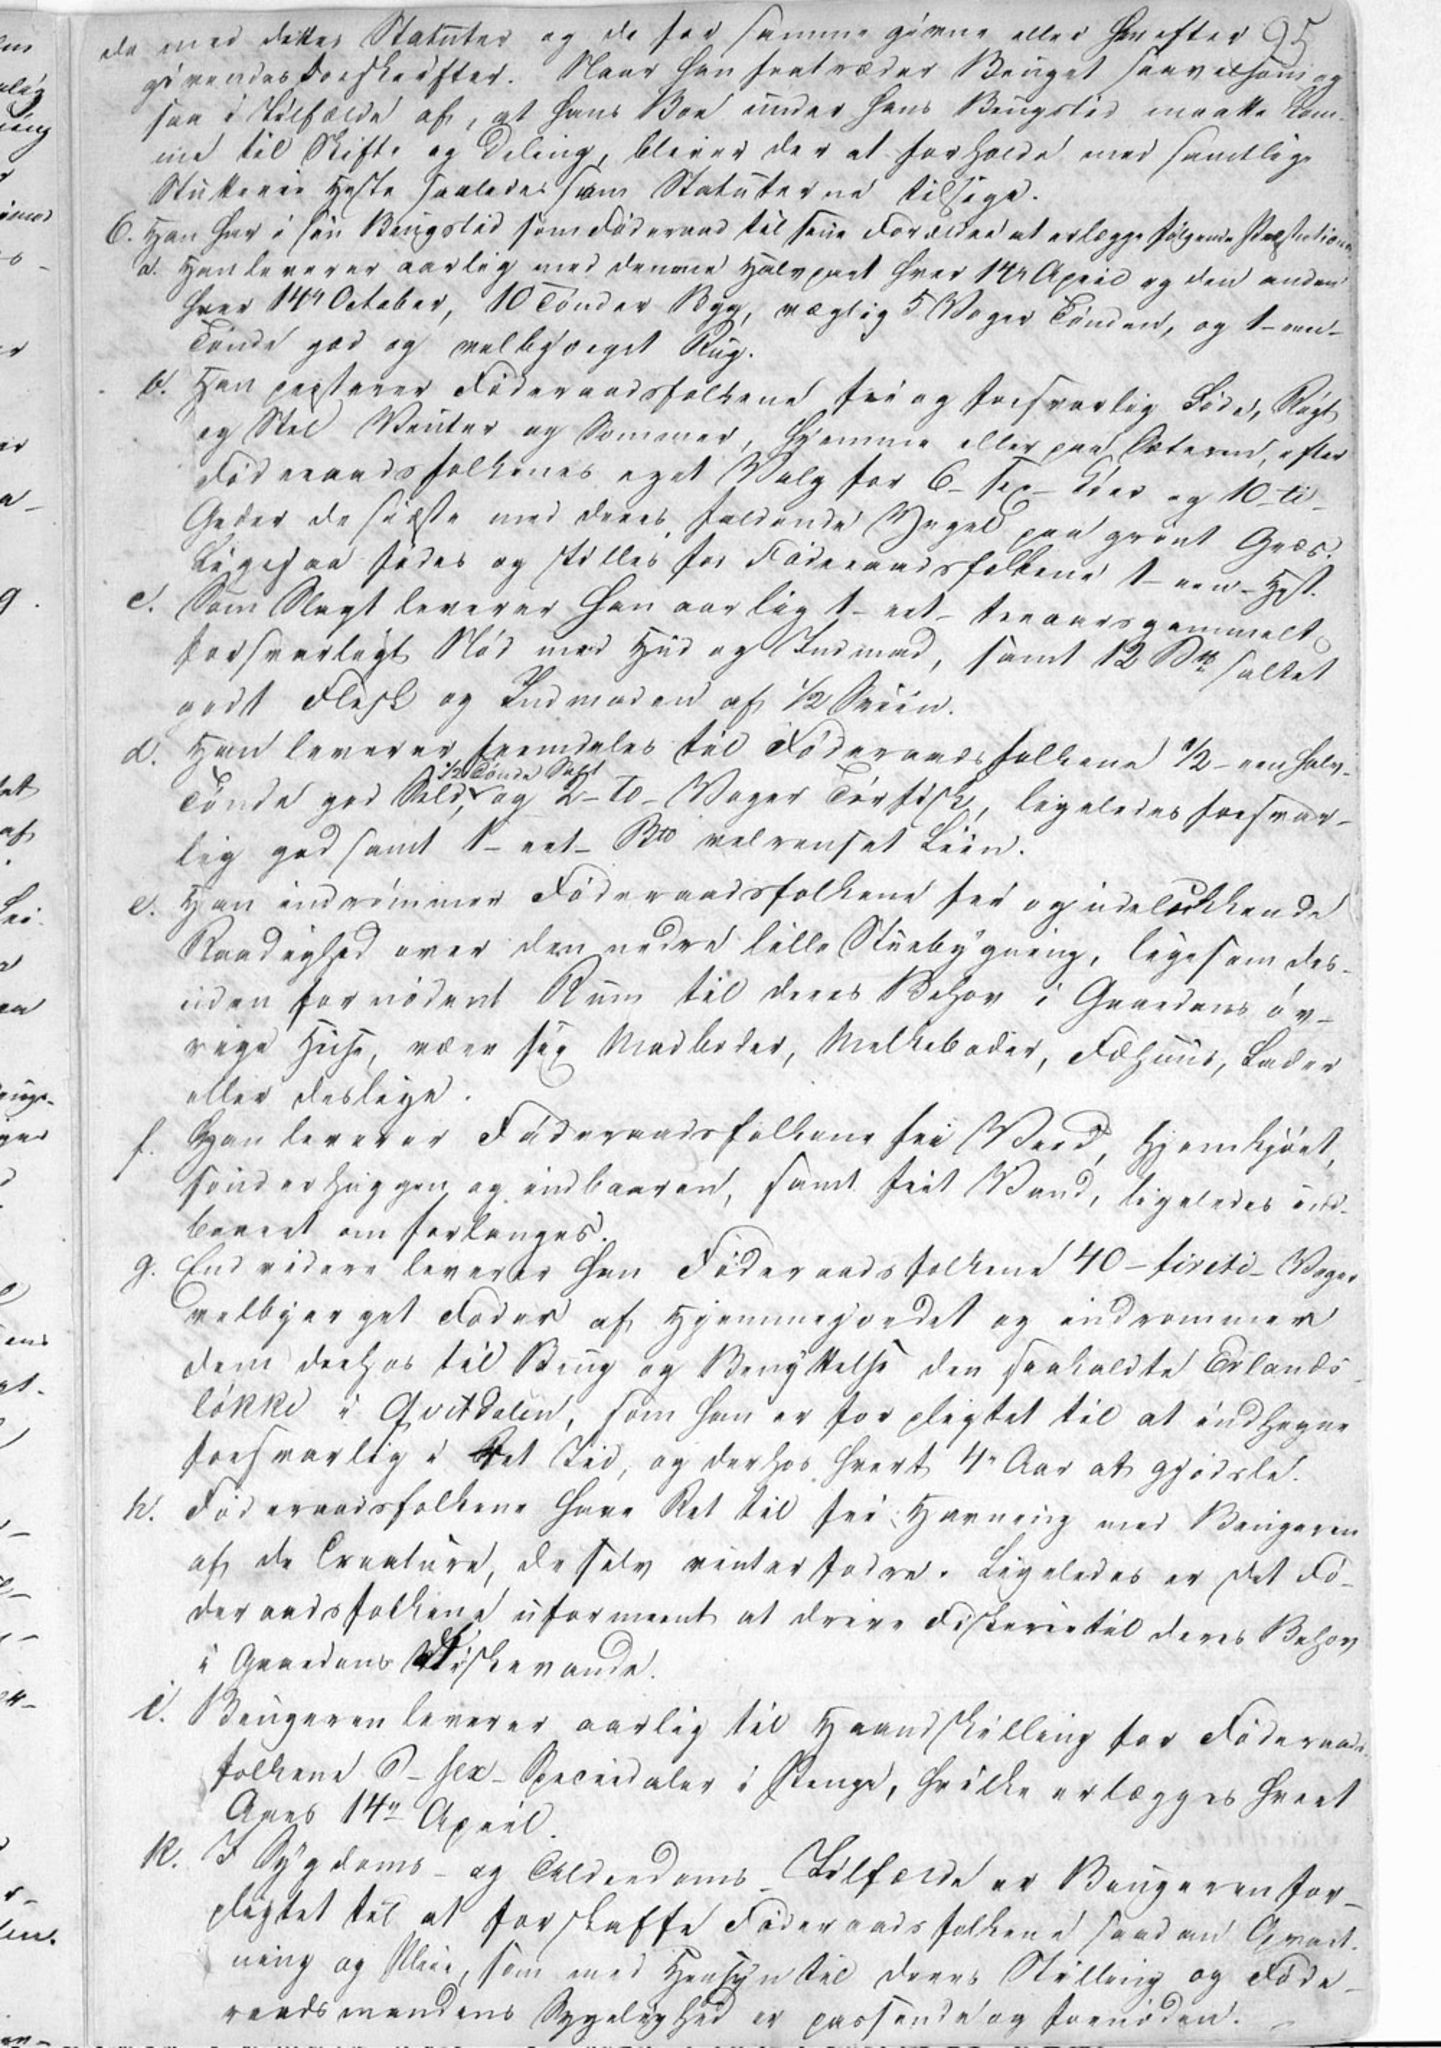 95
de med dettes Statuter og de for samme givne eller herefter
givendes Forskrifter. Naar han fratræder Bruget saavelsom og
saa i Tilfælde af, at hans Boe under hans Brugstid maatte kom-
me til Skifte og Deling, bliver der at forholde med samtlige
Stutterie Heste saaledes som Statuterne tilsige.
6. Han har i sin Brugstid som Føderaad til sine Forældre at erlægge følgende Præstationer
a. Han leverer aarlig med denene Halvpart hver 14de April og den anden
hver 14de October, 10 Tønder Byg, vægtig 5 Voger Tønden, og 1 - een -
Tønde god og velbjerget Rug.
b. Han præsterer Føderaadsfolkene fri og forsvarlig Føde, Røgt
og Stel Vinter og Sommer, hjemme eller paa Sæteren, efter
Føderaadsfolkenes eget Valg for 6 - sex - Kiør og 10 - ti -
Geder de sidste med deres faldende Yngel paa grønt Græs.
Ligesaa fødes og stilles for Føderaadsfolkene 1 - een - Hest.
c. Som Slagt leverer han aarlig 1 - eet - treaarsgammelt
forsvarligt Nød med Hud og Indmad, samt 12 Bpd saltet
godt Flesk og Indmaden af 1/2 Sviin.
d. Han leverer fremdeles til Føderaadsfolkene 1/2 - een halv -
1/2 Tønde Salt
Tønde god Sild, og 2 - to - Voger Tørfisk, ligeledes forsvar-
lig god samt 1 - eet - Bpd velrenset Liin.
e. Han indrømmer Føderaadsfolkene fri og udelukkende
Raadighed over den nedre lille Stuebygning, ligesom des-
uden fornødent Rum til deres Behov i Gaardens øv-
rige Huse, være sig Madboder, Melkeboder, Fæhuus, Lader
eller deslige.
f. Han leverer Føderaadsfolkene fri Veed, hjemkjørt,
sønderhuggen og indbaaren, samt friit Vand, ligeledes ind-
baaret om forlanges.
g. Endvidere leverer han Føderaadsfolkene 40 - fireti - Voger
velbjerget Foder af Hjemmejordet og indrømmer
dem derhos til Brug og Benyttelse den saakaldte Erlands-
løkke i Qvitdalen, som han er forpligtet til at indhegne
forsvarlig i ret Tid, og derhos hvert 4de Aar at gjødsle.
h. Føderaadsfolkene have Ret til fri Havning med Brugeren
af de Creature, de selv vinterfodre. Ligeledes er det Fø-
deraadsfolkene uformeent at drive Fiskerie til deres Behov
i Gaardens Fiskevande.
i. Brugeren leverer aarlig til Haandskilling for Føderaads-
folkene 6 - sex - Speciedaler i Penge, hvilke erlægges hvert
Aars 14de April.
k. I Sygdoms- og Alderdoms-Tilfælde er Brugeren for-
pligtet til at forskaffe Føderaadsfolkene saadan Opvart-
ning og Pleie, som med Hensyn til deres Stilling og Føde-
raadsmandens Sygelighed er passende og fornøden.